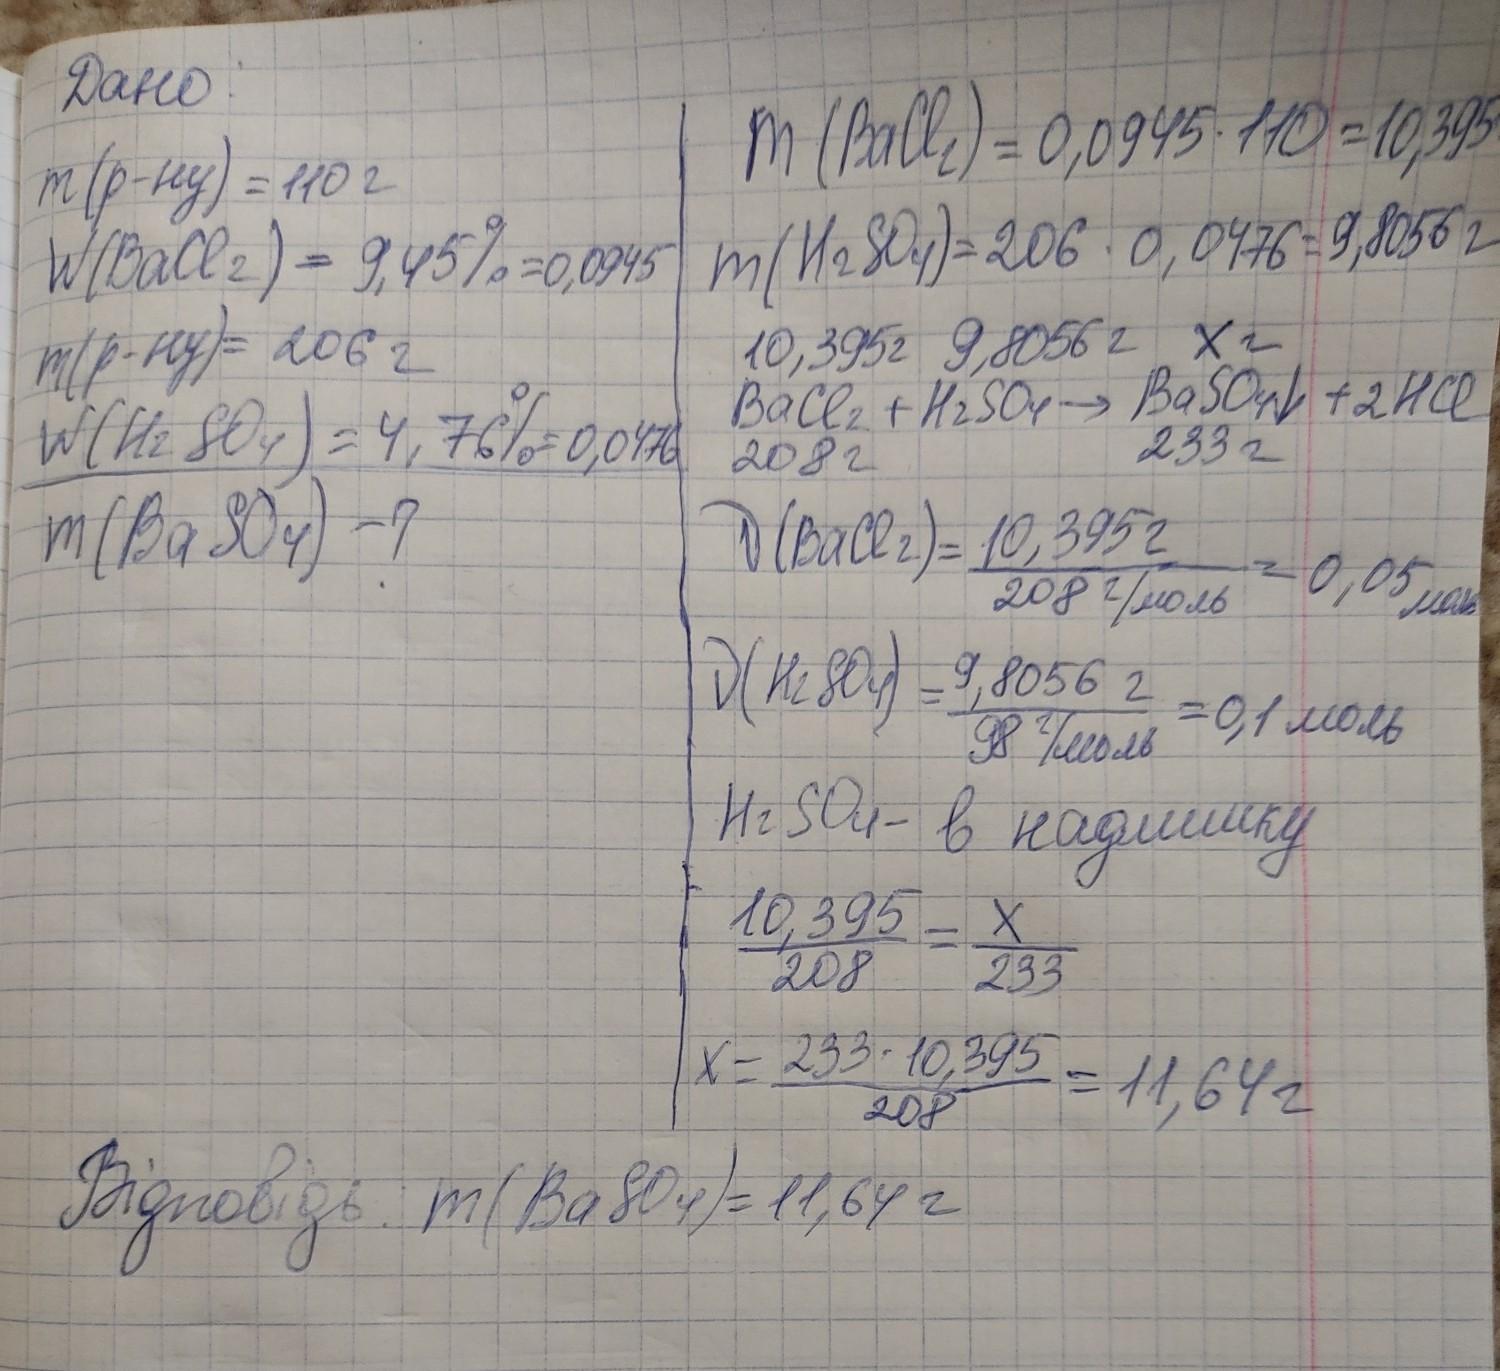 Дано:
m(р-ну) = 110 г
W(BaCl₂) = 9,45% = 0,0945
m(р-ну) = 206 г
W(H₂SO₄) = 4,76% = 0,0476
m(BaSO₄) - ?
m(BaCl₂) = 0,0945 · 110 = 10,395
m(H₂SO₄) = 206 · 0,0476 = 9,8056 г
10,395 г 9,8056 г x г
BaCl₂ + H₂SO₄ → BaSO₄↓ + 2HCl
208 г 233 г
ν(BaCl₂) = 10,395 г / 208 г/моль = 0,05 моль
ν(H₂SO₄) = 9,8056 г / 98 г/моль = 0,1 моль
H₂SO₄ - в надлишку
10,395 / 208 = x / 233
x = 233 · 10,395 / 208 = 11,64 г
Відповідь: m(BaSO₄) = 11,64 г